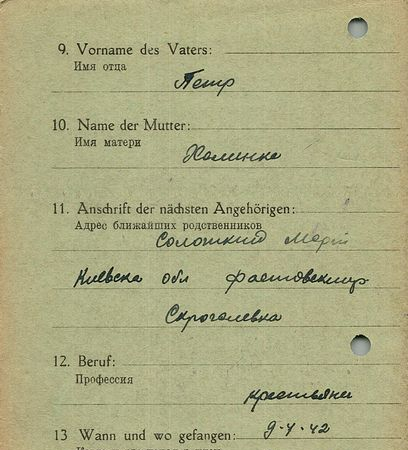 9. Vorname des Vaters:
Имя отца
Петр
10. Name der Mutter:
Имя матери
Халинка
11. Anschrift der nächsten Angehörigen:
Адрес ближайших родственников
Солошкий
Киевска обл фастовск
Скрогалевка
12. Beruf:
Профессия
крестьянин
13 Wann und wo gefangen:
9-4-42